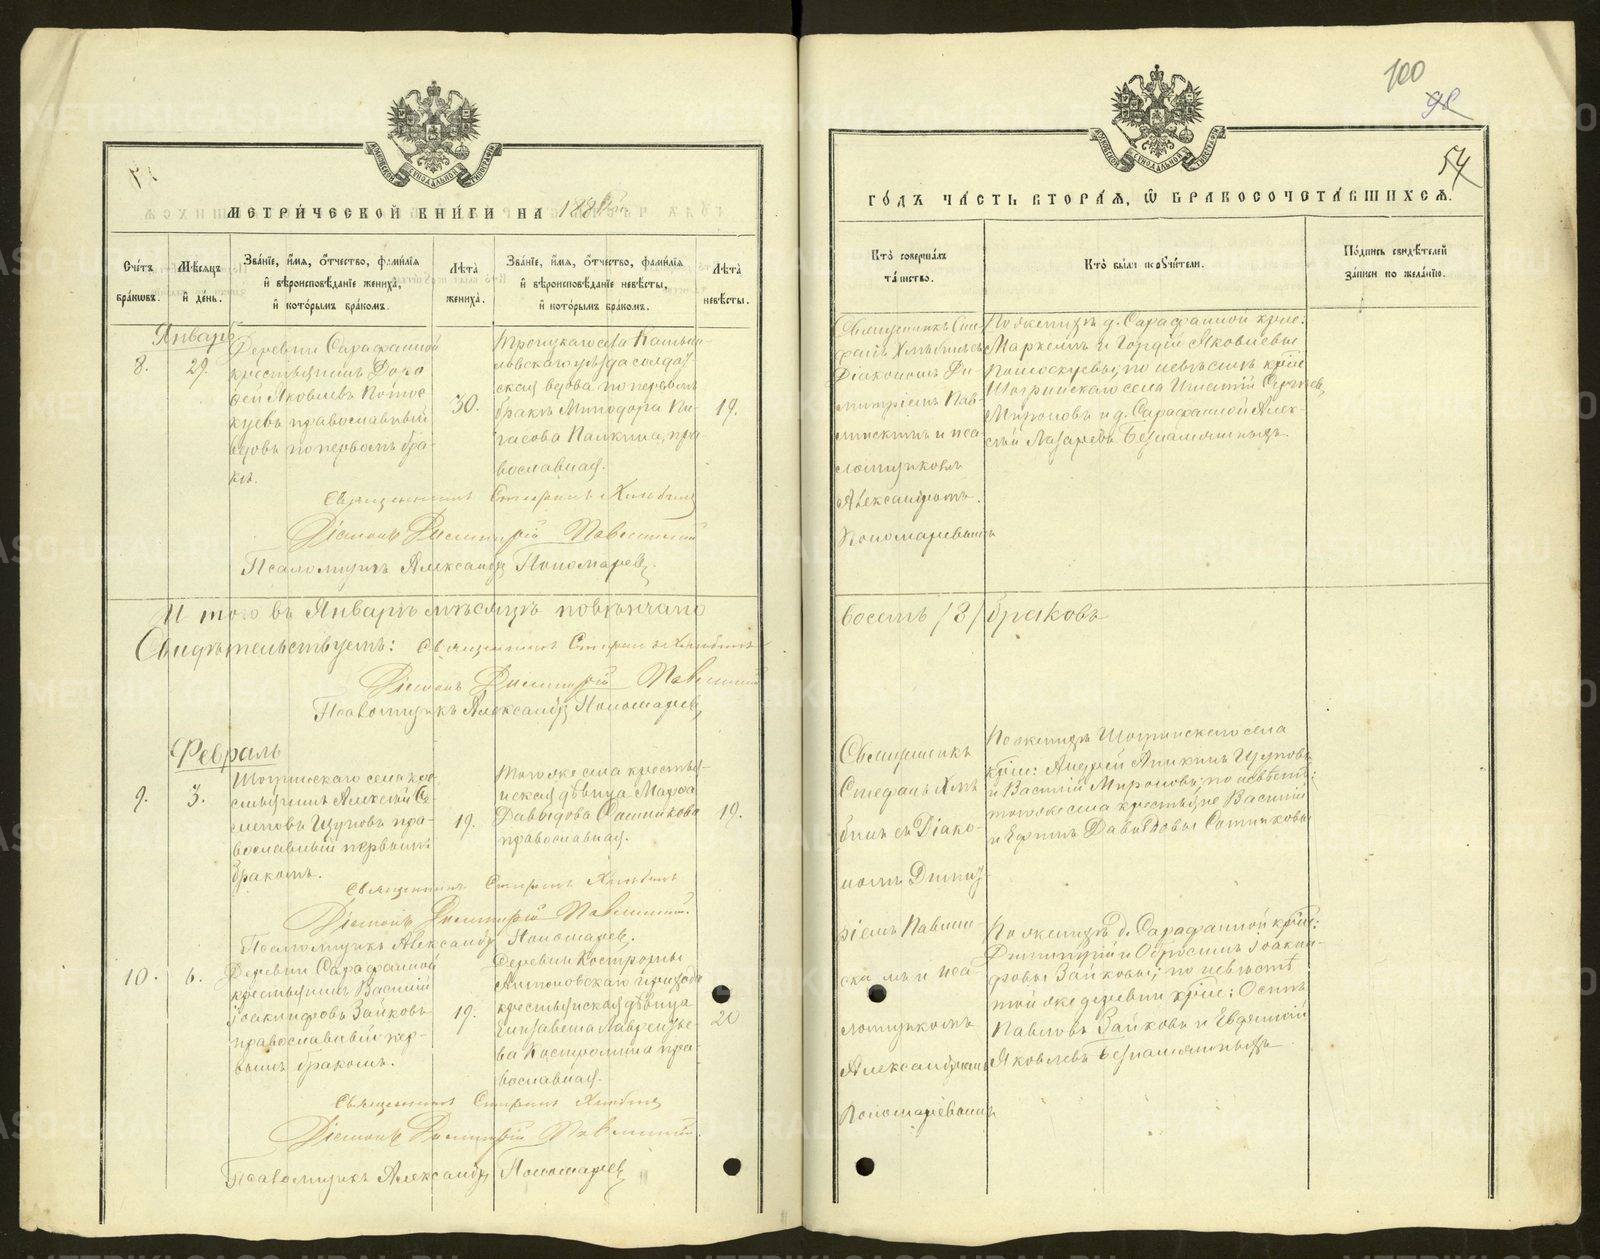 МЕТРИ́ЧЕСКОЙ КНИ́ГИ НА 188
Сче́тъ бра́кωвъ.
Мѣ́сяцъ и҆ де́нь.
Зва́нїе, и҆́мя, ѻ҆́тчество, фами́лїя и҆ вѣроисповѣ́данїе жениха̀, и҆ кото́рымъ бра́комъ.
Лѣ́та жениха̀.
Зва́нїе, и҆́мя, ѻ҆́тчество, фами́лїя и҆ вѣроисповѣ́данїе невѣ́сты, и҆ кото́рымъ бра́комъ.
Лѣ́та невѣ́сты.
Январь
8.
29.
Деревни Сарафанной
крестьянинъ Доро
фей Яковлевъ Помос
куевъ православный
вдовъ по первомъ бра-
кѣ.
30.
Троицкаго села Камыш-
ловскаго уѣзда солдат
ская вдова по первомъ
бракѣ Минодора Пи-
гасова Палкина, пра
вославная.
19.
Священникъ Стефанъ Хлыбинъ
Діаконъ Димитрій Павлинскій
Псаломщикъ Александръ Пономаревъ.
И того въ Январѣ мѣсяцѣ повѣнчано
Свидѣтельствуемъ: Священникъ Стефанъ Хлыбинъ
Діаконъ Димитрій Павлинскій
Псаломщикъ Александръ Пономаревъ
Февраль
9.
3.
Шогринскаго села кре
стьянинъ Алексѣй Се
меновъ Щуповъ пра-
вославный первымъ
бракомъ.
19.
Того же села крестья-
нская дѣвица Марфа
Давыдова Сотникова
православная.
19.
Священникъ Стефанъ Хлыбинъ
Діаконъ Димитрій Павлинскій.
Псаломщикъ Александръ Пономаревъ.
10.
6.
Деревни Сарафанной
крестьянинъ Василій
Іоакимфовъ Зайковъ
православный пер-
вымъ бракомъ.
19.
Деревни Костромы
Антоновскаго прихода
крестьянская дѣвица
Елизавета Лаврентье
ва Костромина пра-
вославная.
20
Священникъ Стефанъ Хлыбинъ
Діаконъ Димитрій Павлинскій.
Псаломщикъ Александръ Пономаревъ
100
98
54
ГО́ДЪ ЧА́СТЬ ВТОРА́Я, Ѽ БРАКОСОЧЕТА́ВШИХСЯ.
Кто̀ соверша́лъ та́инство.
Кто̀ бы́ли поручи́тели.
По́дпись свидѣ́телей за́писи по жела́нїю.
Священникъ Сте-
фанъ Хлыбинъ съ
Діакономъ Ди-
митріемъ Пав-
линскимъ и пса-
ломщикомъ
Александромъ
Пономаревымъ
По женихѣ д. Сарафанной крес:
Маркеллъ и Гордѣй Яковлевы
Помоскуевы; по невѣстѣ крес:
Шогринскаго села Игнатій Сергѣевъ
Мироновъ и д. Сарафанной Алек-
сѣй Лазаревъ Безпамятныхъ.
восемь /8/ браковъ
Священникъ
Стефанъ Хлы
бинъ съ Діако-
номъ Димит
ріемъ Павлин
скимъ и пса-
ломщикомъ
Александромъ
Пономаревымъ
По женихѣ Шогринскаго села
крес: Андрей Аникинъ Щуповъ
и Василій Мироновъ; по невѣстѣ:
того же села крестьяне Василій
и Ефимъ Давыдовы Сотниковы
По женихѣ д. Сарафанной крес:
Димитрій и Обросимъ Іоаким-
фовы Зайковы; по невѣстѣ
той же деревни крес: Осипъ
Павловъ Зайковъ и Евдокимъ
Яковлевъ Безпамятныхъ
METRIKI.GASO-URAL.RU